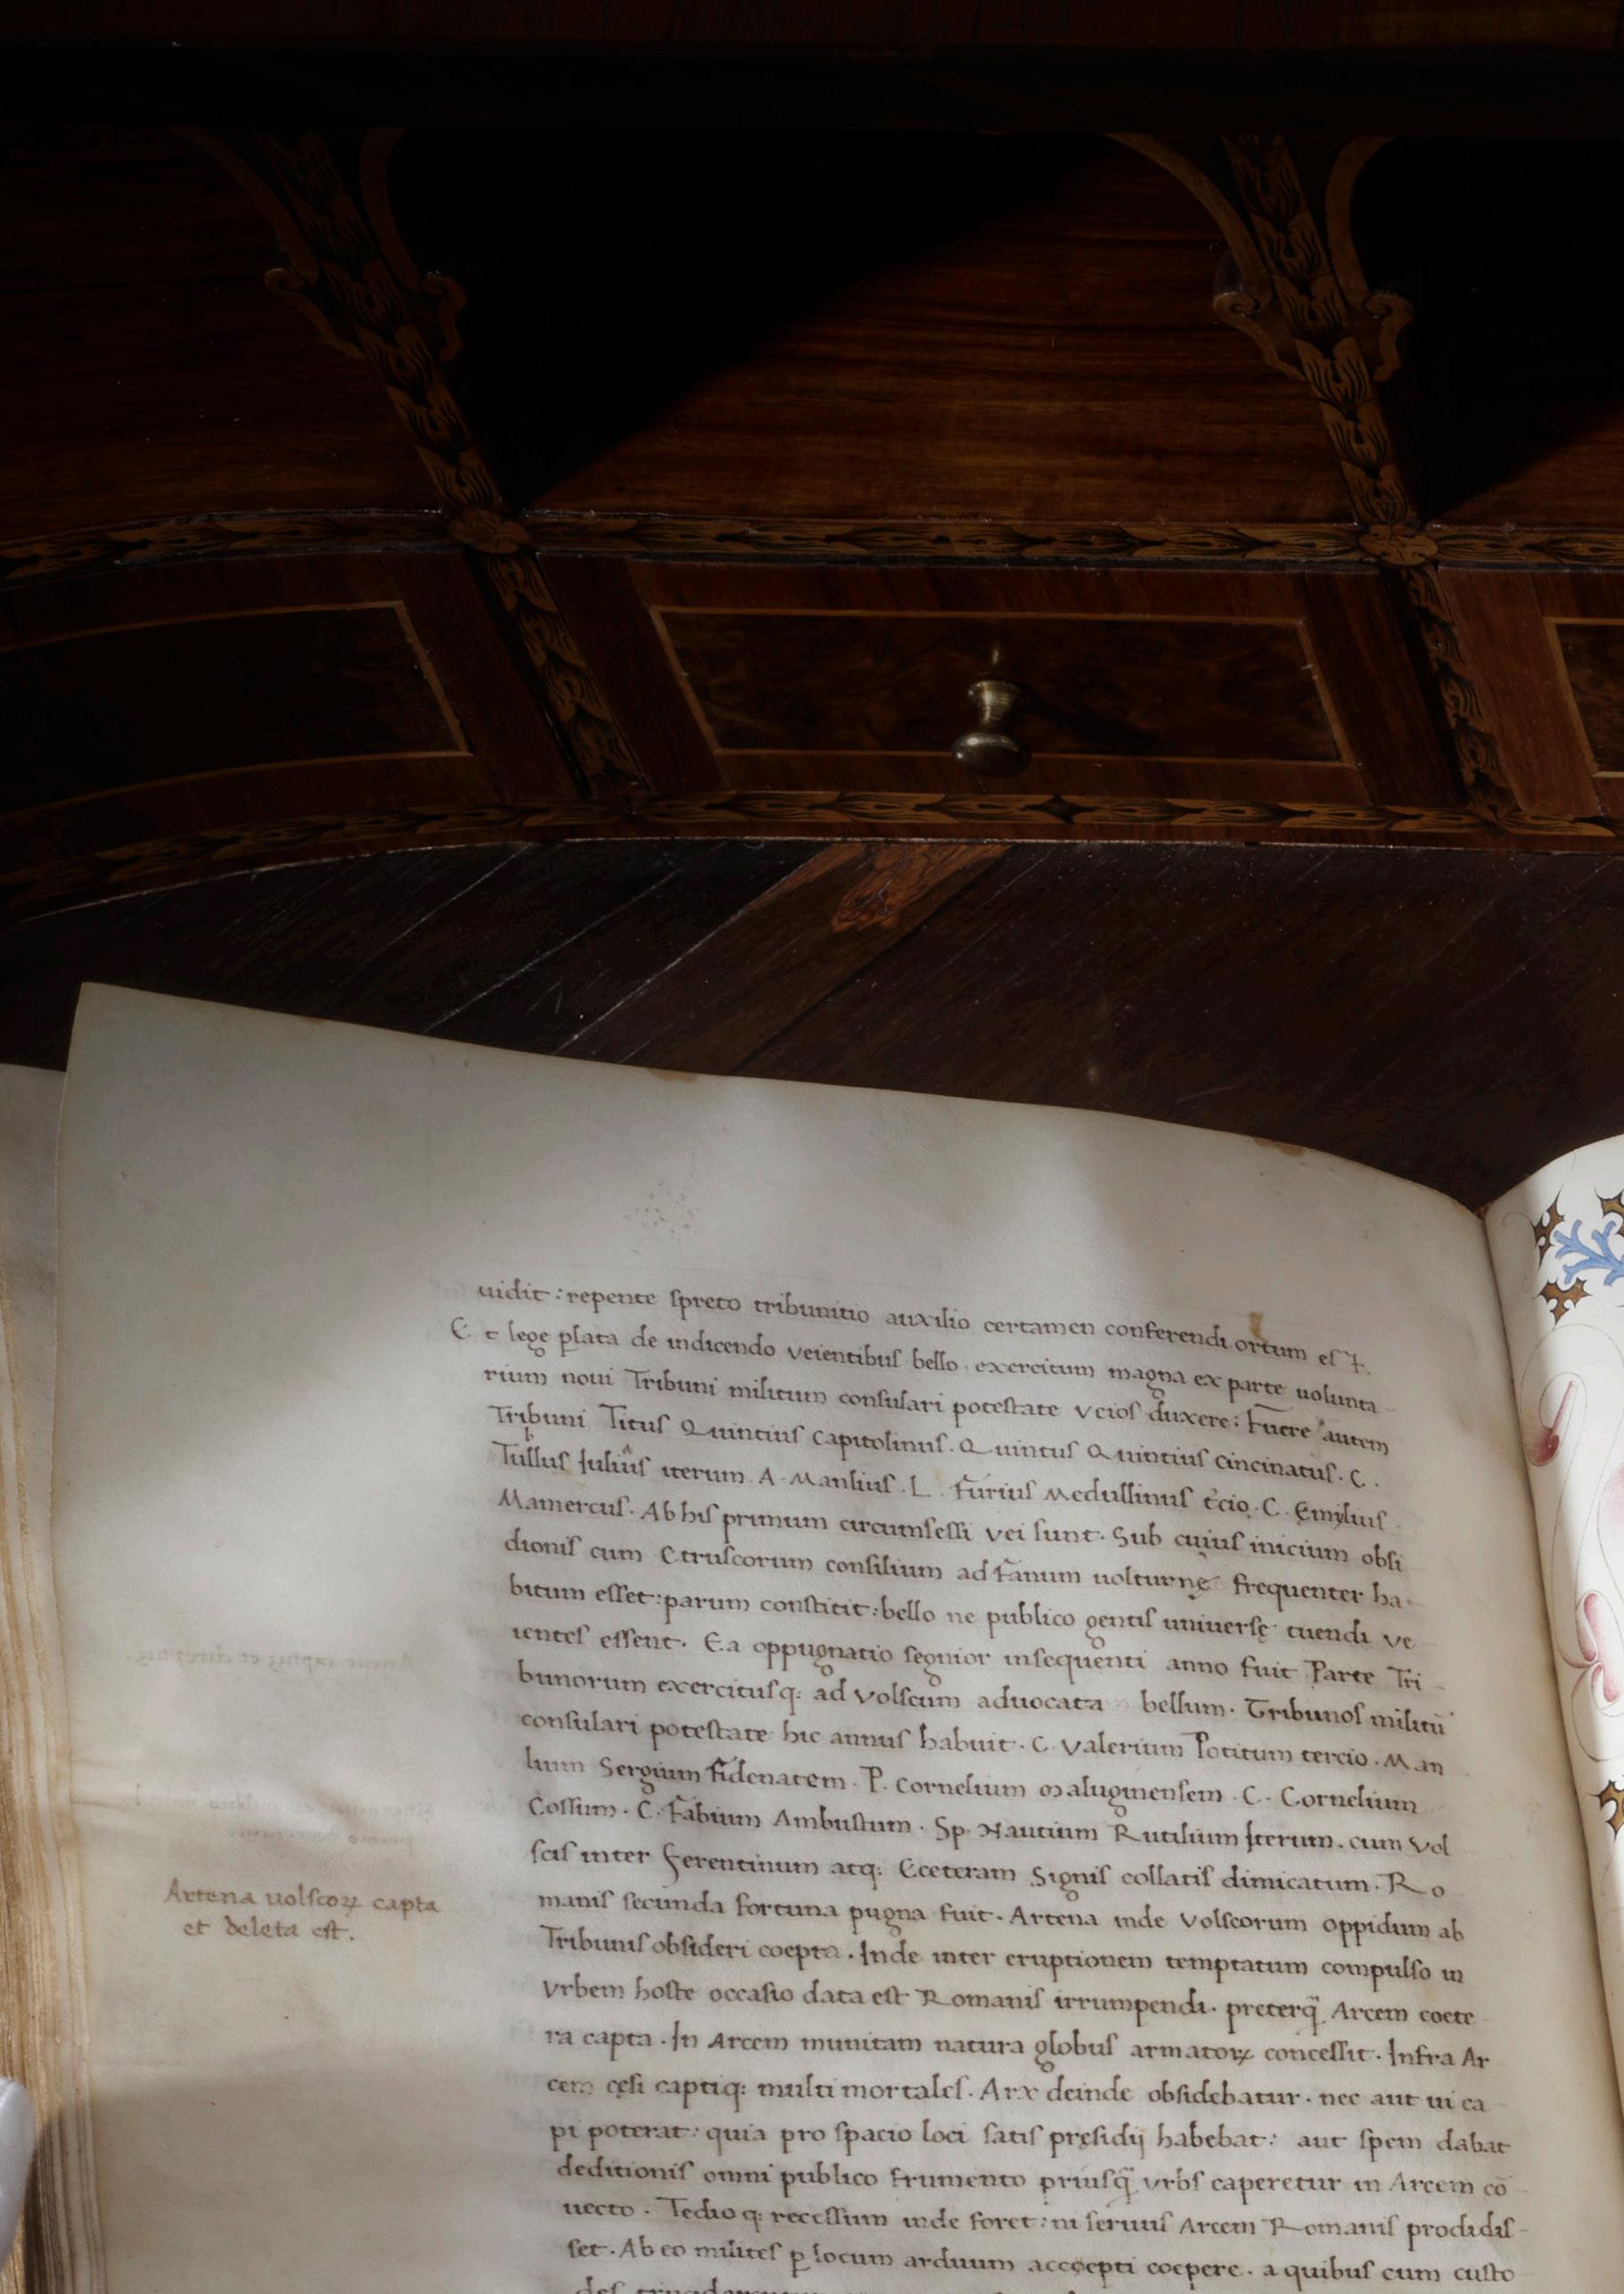 uidit : repente spreto tribunitio auxilio certamen conferendi ortum est.
Et lege plata de indicendo veientibus bello . exercitum magna ex parte uolunta
rium noui Tribuni militum consulari potestate veios duxere : Fuere autem
Tribuni Titus Quintius Capitolinus . Quintus Quintius Cincinatus . C .
Tullus Iulius iterum . A . Manlius . L . Furius Medullinus tcio . C . Emylius
Mamercus . Ab his primum circumsessi vei sunt . Sub cuius inicium obsi
dionis cum Etruscorum consilium ad fanum uolturnę frequenter ha
bitum esset : parum constitit : bello ne publico gentis universę tuendi ve
ientes essent . Ea oppugnatio segnior insequenti anno fuit Parte Tri
bunorum exercitusq; ad Volscum aduocata bellum . Tribunos militū
consulari potestate hic annus habuit . C . Valerium Potitum tercio . Man
lium Sergium fidenatem . P . Cornelium Maluginensem . C . Cornelium
Cossum . C . Fabium Ambustum . Sp . Nautium Rutilium Iterum . cum Vol
scis inter ferentinum atq; Eceteram Signis collatis dimicatum . Ro
manis secunda fortuna pugna fuit . Artena inde Volscorum oppidum ab
Tribunis obsideri coepta . Inde inter eruptionem temptatum compulso in
Vrbem hoste occasio data est Romanis irrumpendi . preterq̄ Arcem coete
ra capta . In Arcem munitam natura globus armatoꝝ concessit . Infra Ar
cem cęsi captiq; multi mortales . Arx deinde obsidebatur . nec aut ui ca
pi poterat : quia pro spacio loci satis pręsidij habebat : aut spem dabat
deditionis omni publico frumento priusq̄ vrbs caperetur in Arcem cō
uecto . Tedio q; recessum inde foret : ni seruus Arcem Romanis prodidis
set . Ab eo milites ꝑ locum arduum accoepti coepere . a quibus cum custo
des
Artena uolscoꝝ capta
et deleta est .